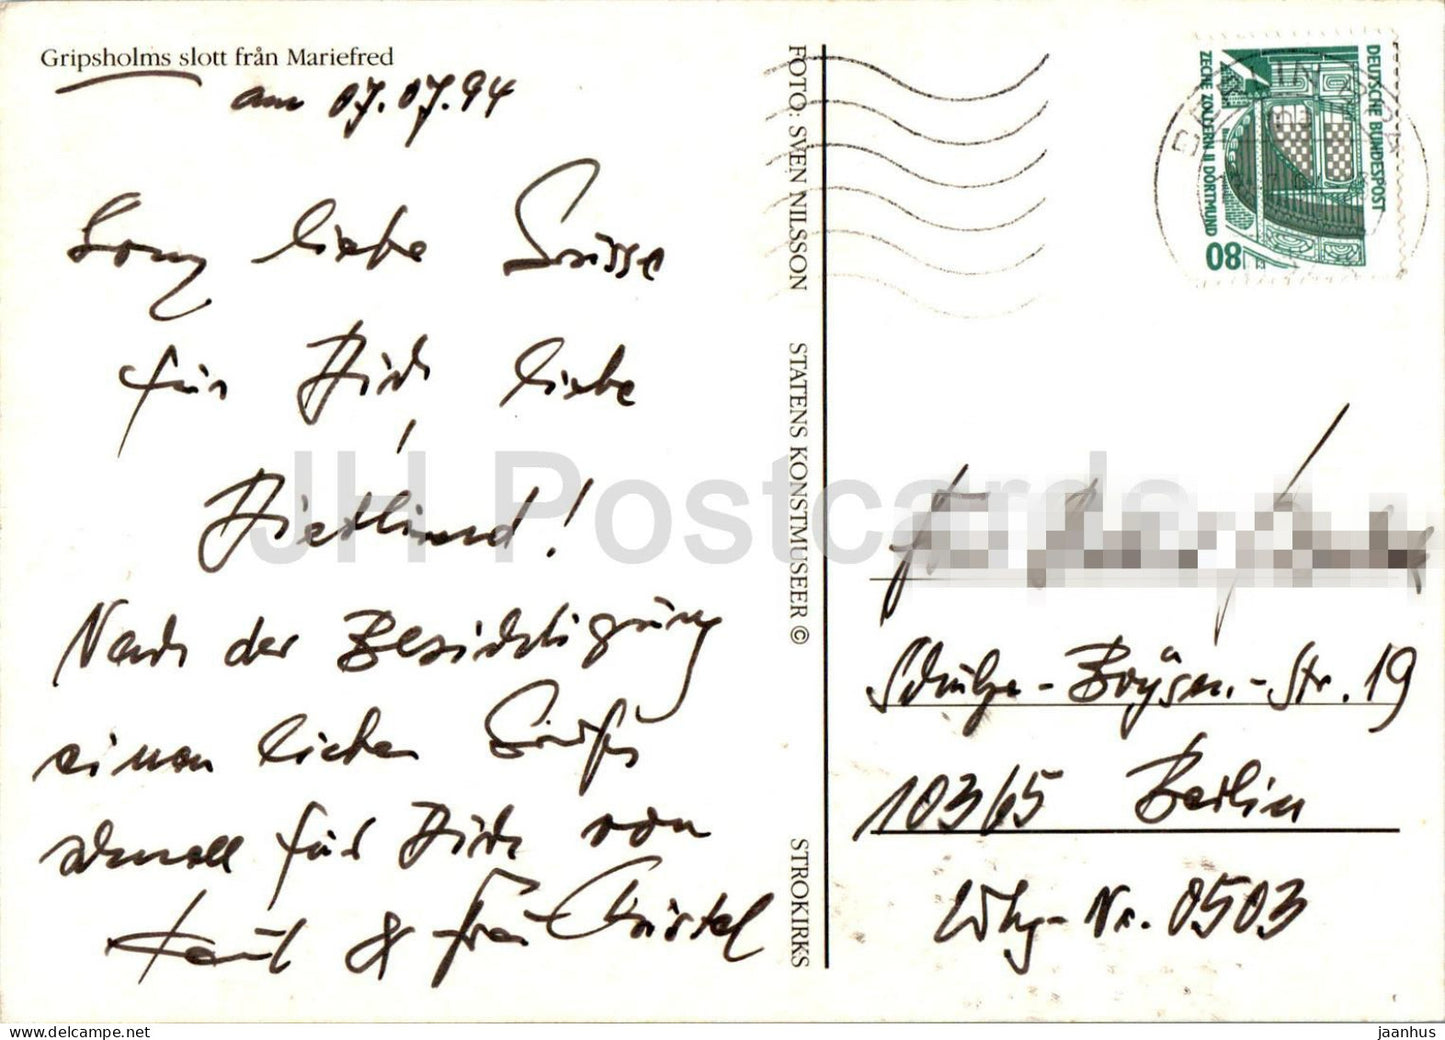 Gripsholms slott från Mariefred
am 07.07.94
Ganz liebe Grüsse
für Dich liebe
Dietlind!
Nach der Besichtigung
einen lieben Gruß
schnell für Dich von
& Frau Christel
FOTO: SVEN NILSSON STATENS KONSTMUSEER © STROKIRKS
DEUTSCHE BUNDESPOST
ZECHE ZOLLERN II DORTMUND
80
BERLIN
Schulze-Boysen-Str. 19
10365 Berlin
Whg-Nr. 0503
JH Postcards
jaanhus
www.delcampe.net